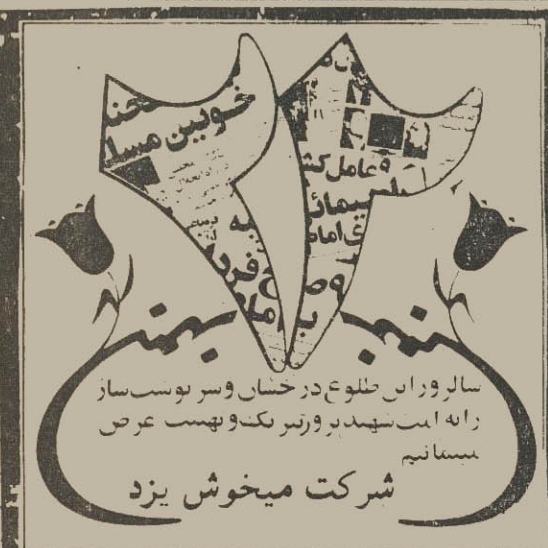 ۲۲
خونین مسلـ
عامل کشـ
بهمن
سالروز این طلوع درخشان وسرنوشت ساز
رابه امت شهیدپرور تبریک و تهنیت عرض
مینمائیم
شرکت میخوش یزد